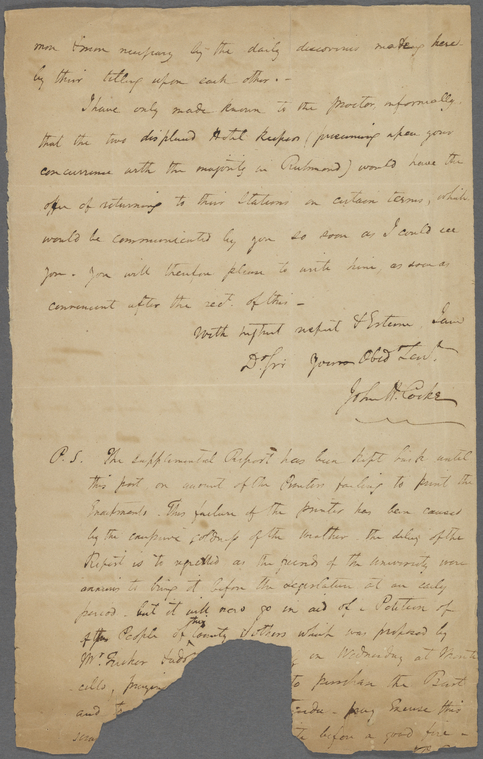 mon & mon necessary by the daily discoveries making here
by their telling upon each other. -
I have only made known to the Proctor informally
that the two displaced Hotel Keepers (presuming upon your
concurrence with the majority in Richmond) would have the
offer of returning to their Stations on certain terms, which
would be communicated by you so soon as I could see
you. You will therefore please to write him, as soon as
convenient after the rect. of this -
With highest respect & Esteem I am
Dr Sir Yours Obedt Servt.
John H. Cocke
P.S. The supplemental Report has been kept back until
this post on account of the Printers failing to print the
Enactments. This failure of the printer has been caused
by the excessive coldness of the weather. the delay of the
Report is to regretted as the friends of the University were
anxious to bring it before the Legislature at an early
period. but it will now go in aid of a Petition of
of the People of this County & others which was proposed by
Mr. on Wednesday at Monti
cello, praying to purchase the Bust
and pray Excuse this
before a good fire -